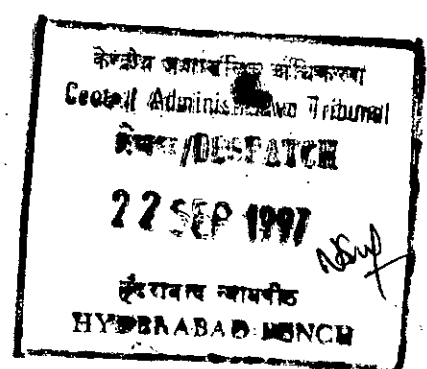 केन्द्रीय प्रशासनिक अधिकरण
Central Administrative Tribunal
प्रेषण/DESPATCH
22 SEP 1997
हैदराबाद न्यायपीठ
HYDERABAD BENCH